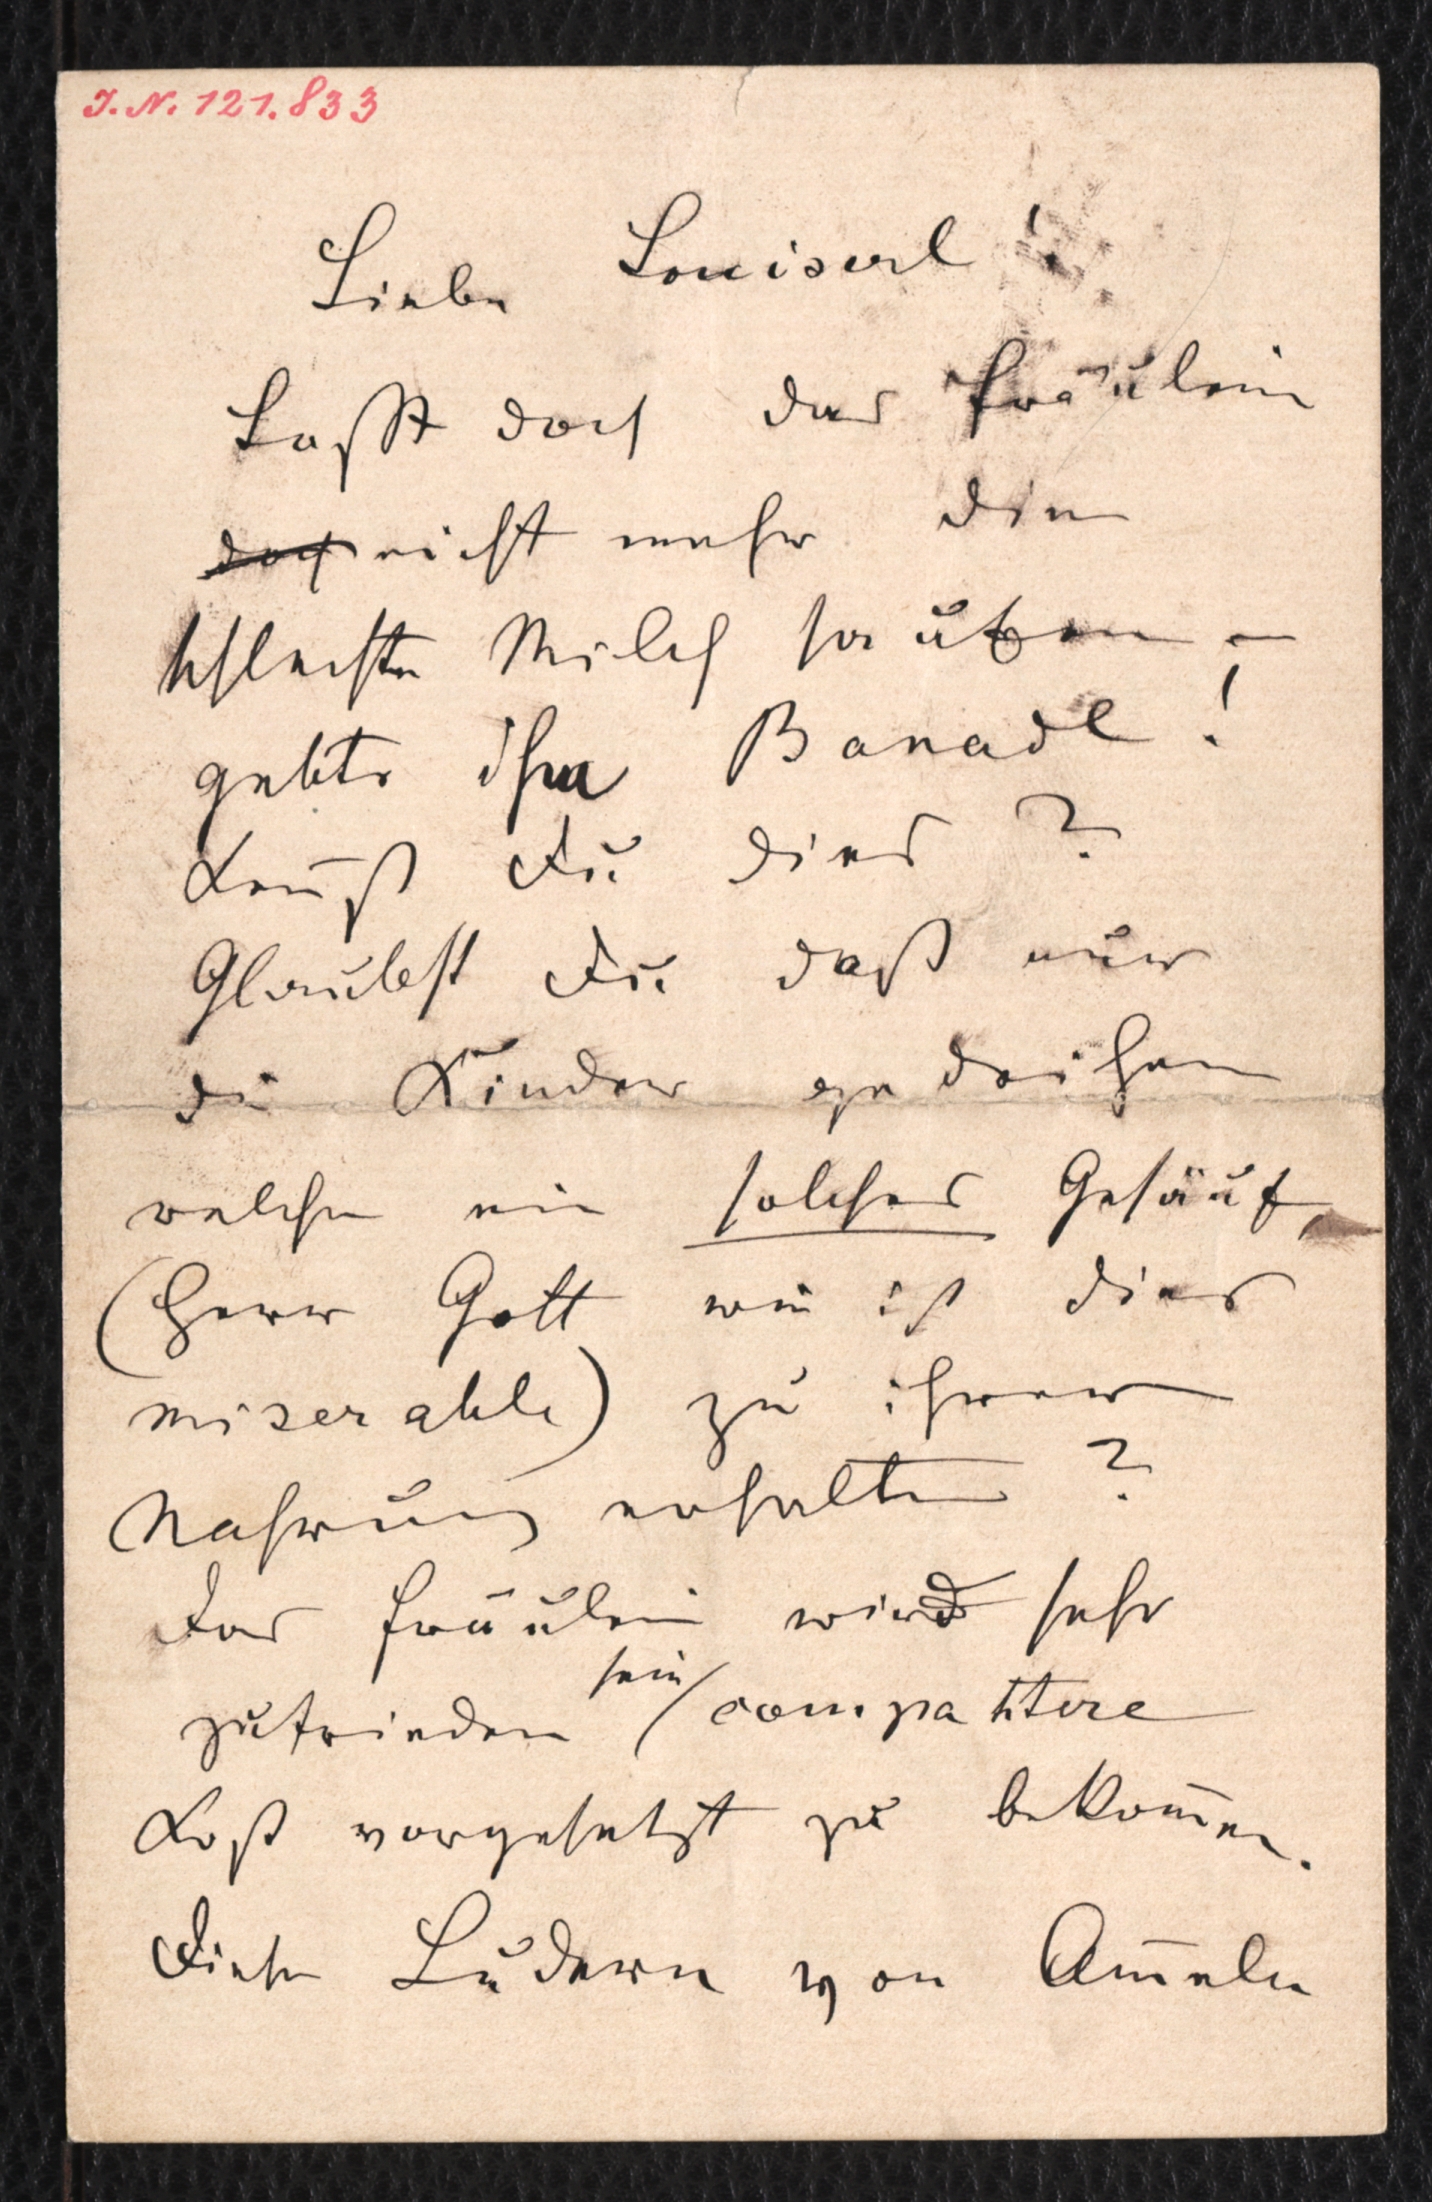 I. N. 121.833
Liebe Louiserl!
Laßt doch das Fräulein
doch nicht mehr die
schlechte Milch saufen –
gebts ihm Banadl!
Kennst Du dies?
Glaubst Du daß nur
die Kinder gedeihen
welche ein solches Gesäuf
(Herr Gott wie ist dies
miserable) zu ihrer
Nahrung erhalten?
Das Fräulein wird sehr
zufrieden sein compattere
Kost vorgesetzt zu bekom̅en.
Diese Ludern von Am̅eln